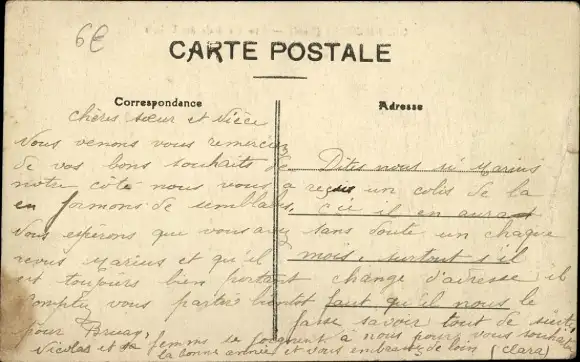 6€
CARTE POSTALE
Correspondance
Adresse
chères sœur et Nièce
Nous venons vous remercier
de vos bons souhaits de
notre côté nous vous
en formons de semblables.
Nous espérons que vous avez
revus Marius et qu'il
est toujours bien portant
compte vous partir bientôt
pour
Dites nous si Marius
a reçus un colis de la
il en aurat
sans doute un chaque
mois, surtout s'il
change d'adresse il
faut qu'il nous le
fasse savoir tout de suite,
Nicolas et sa femme se joignent à nous pour vous souhaiter
la bonne année et vous embrasse de loin (Clara)